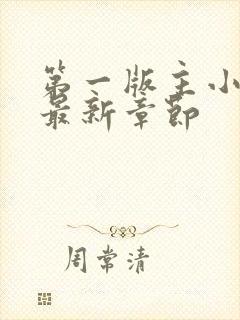 第一版主小
最新章节
周常清